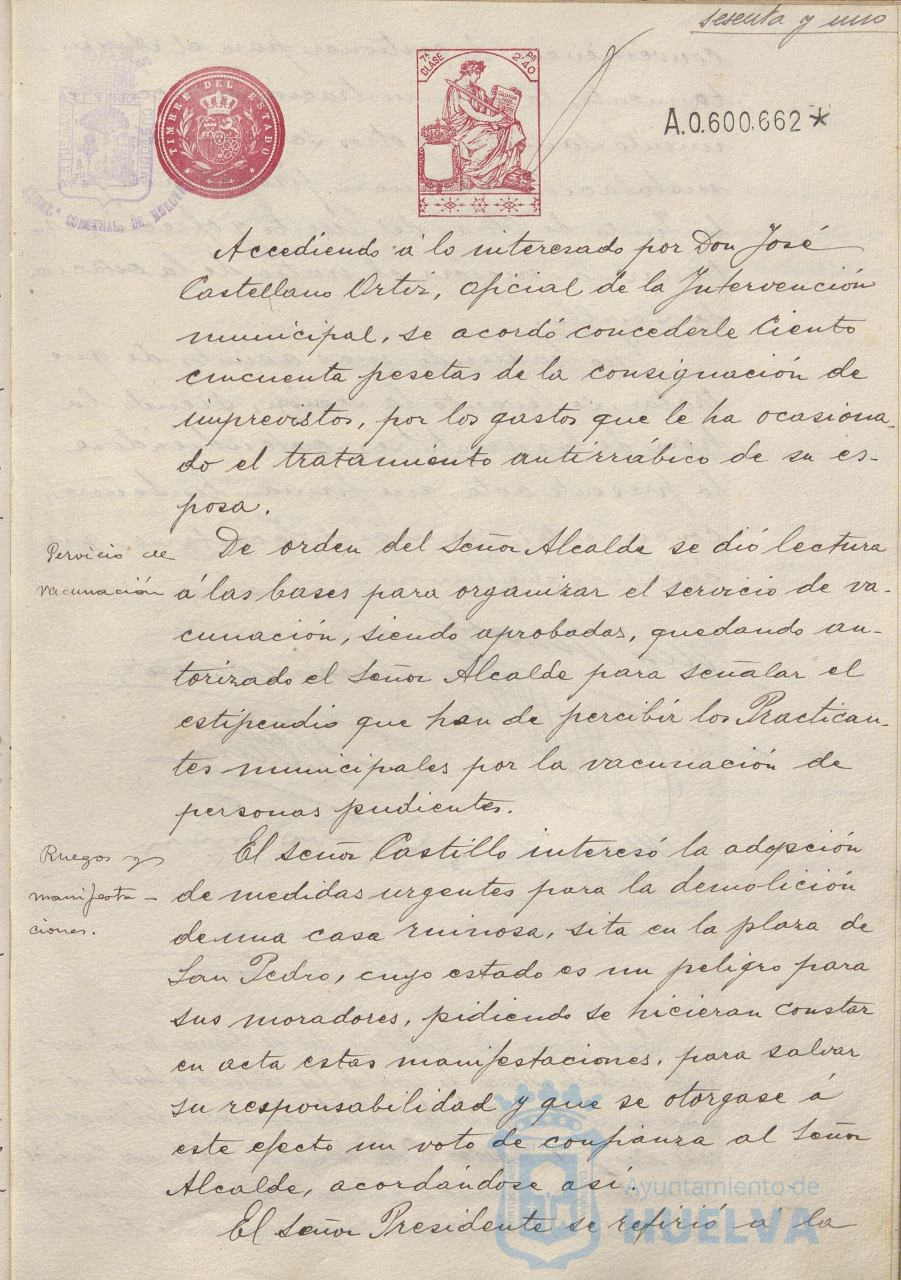 sesenta y uno
TIMBRE DEL ESTADO
7ª CLASE
2'40
A.0.600.662 *
Accediendo á lo interesado por Don José
Castellano Ortiz, oficial de la Intervención
municipal, se acordó concederle Ciento
cincuenta pesetas de la consignación de
imprevistos, por los gastos que le ha ocasiona-
do el tratamiento antirrábico de su es-
posa.
Servicio de
vacunación
De orden del Señor Alcalde se dió lectura
á las bases para organizar el servicio de va-
cunación, siendo aprobadas, quedando au-
torizado el Señor Alcalde para señalar el
estipendio que han de percibir los Practican-
tes municipales por la vacunación de
personas pudientes.
Ruegos y
manifesta-
ciones.
El Señor Castillo interesó la adopción
de medidas urgentes para la demolición
de una casa ruinosa, sita en la plaza de
San Pedro, cuyo estado es un peligro para
sus moradores, pidiendo se hicieran constar
en acta estas manifestaciones, para salvar
su responsabilidad y que se otorgase á
este efecto un voto de confianza al Señor
Alcalde, acordándose así.
El Señor Presidente se refirió á la
Ayuntamiento de
HUELVA